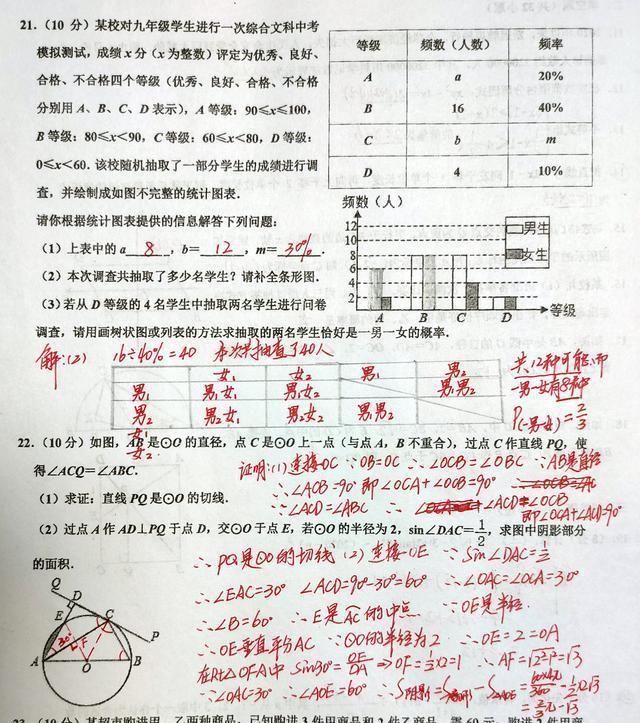 21.（10 分）某校对九年级学生进行一次综合文科中考
模拟测试，成绩 x 分（x 为整数）评定为优秀、良好、
合格、不合格四个等级（优秀、良好、合格、不合格
分别用 A、B、C、D 表示），A 等级：90≤x≤100，
B 等级：80≤x<90，C 等级：60≤x<80，D 等级：
0≤x<60．该校随机抽取了一部分学生的成绩进行调
查，并绘制成如图不完整的统计图表．
等级 频数（人数） 频率
A a 20%
B 16 40%
C b m
D 4 10%
请你根据统计图表提供的信息解答下列问题：
（1）上表中的 a 8 ，b= 12 ，m= 30% ．
（2）本次调查共抽取了多少名学生？请补全条形图．
（3）若从 D 等级的 4 名学生中抽取两名学生进行问卷
频数（人）
12
10
8
6
4
2
A B C D 等级
男生
女生
调查，请用画树状图或列表的方法求抽取的两名学生恰好是一男一女的概率．
解：(2) 16÷40%=40 本次共抽查了40人
女1 女2 男1 男2
男1 男1女1 男1女2 男1男2
男2 男2女1 男2女2 男2男1
女1
女2
共12种可能，而
一男一女有8种
P(一男一女)=2/3
22.（10 分）如图，AB 是⊙O 的直径，点 C 是⊙O 上一点（与点 A，B 不重合），过点 C 作直线 PQ，使
得∠ACQ=∠ABC．
（1）求证：直线 PQ 是⊙O 的切线．
（2）过点 A 作 AD⊥PQ 于点 D，交⊙O 于点 E，若⊙O 的半径为 2，sin∠DAC=1/2，求图中阴影部分
的面积．
证明：(1) 连接OC ∵OB=OC ∴∠OCB=∠OBC ∵AB是直径
∴∠ACB=90° 即∠OCA+∠OCB=90°
∵∠ACD=∠ABC ∴∠ACD=∠OCB
即∠OCA+∠ACD=90°
∴PQ是⊙O的切线 (2) 连接OE ∵sin∠DAC=1/2
∴∠EAC=30° ∠ACD=90°-30°=60° ∴∠OAC=∠OCA=30°
∴∠B=60° ∴E是AC的中点 ∵OE是半径
∴OE垂直平分AC ∵⊙O的半径为2 ∴OE=2=OA
在Rt△OFA中 sin30°=OF/OA ⇒OF=1/2×2=1 ∴AF=√2²-1²=√3
∵∠OAC=30° ∴∠AOE=60° ∴S阴影=S扇形-S△AOE=60×4π/360-1/2×2√3
=2/3π-√3
Q D E C P A O B F 30°